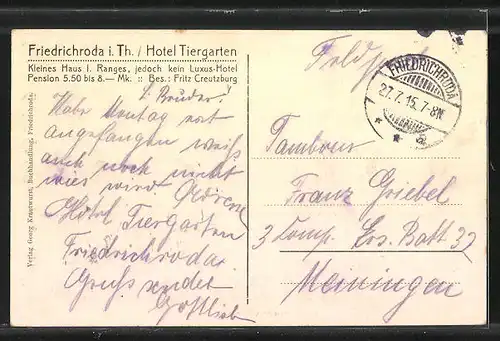 Friedrichroda i. Th. / Hotel Tiergarten
Kleines Haus I. Ranges, jedoch kein Luxus-Hotel
Pension 5.50 bis 8.— Mk. :: Bes.: Fritz Creutzburg
L. Bruder!
Habe Montag erst
angefangen weiß
auch noch nicht
wies wird Adresse
Hotel Tiergarten
Friedrichroda.
Gruß sendet
Gottlieb
Feldpost
FRIEDRICHRODA
27.7.15. 7-8N.
Tambour
Franz Griebel
3 Comp. Ers. Batt 32
Meiningen
Verlag Georg Kratwurst, Buchhandlung, Friedrichroda.